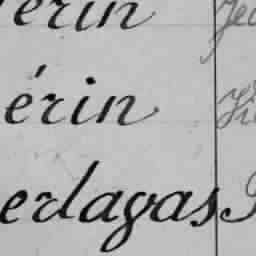 érin
érin
erlagas